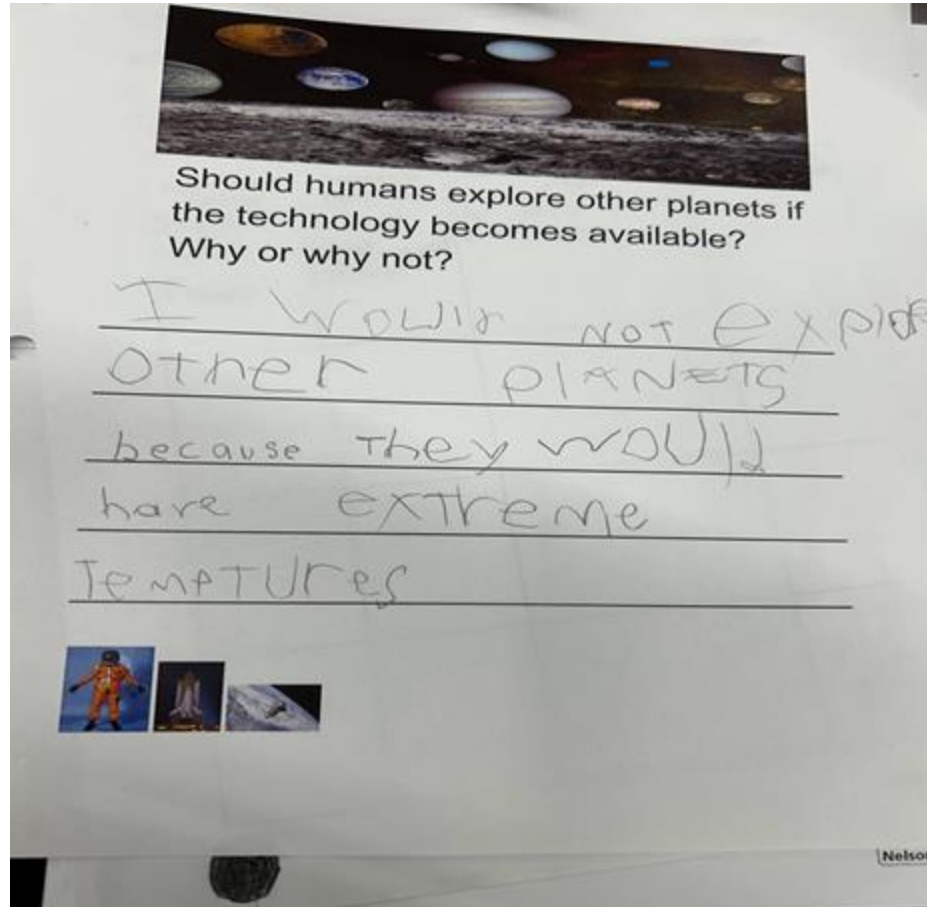 Should humans explore other planets if
the technology becomes available?
Why or why not?
I would NOT explor
other plANETS
because They would
have exTreme
TempTUres
Nelson